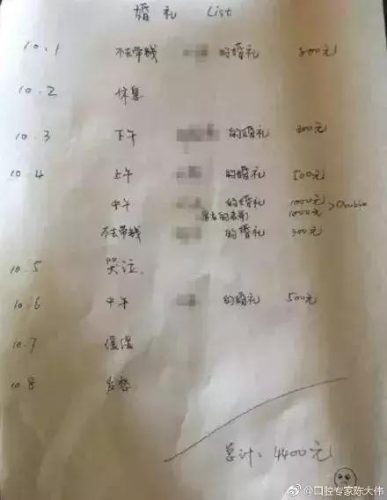 婚礼 List
10.1 不去带钱 的婚礼 300元
10.2 休息
10.3 下午 的婚礼 300元
10.4 上午 的婚礼 500元
中午 的婚礼 1000元
1000元 >Double
不去带钱 的婚礼 300元
10.5 哭泣
10.6 中午 的婚礼 500元
10.7 缓缓
10.8 发愁
总计: 4400元
@口腔专家陈大伟